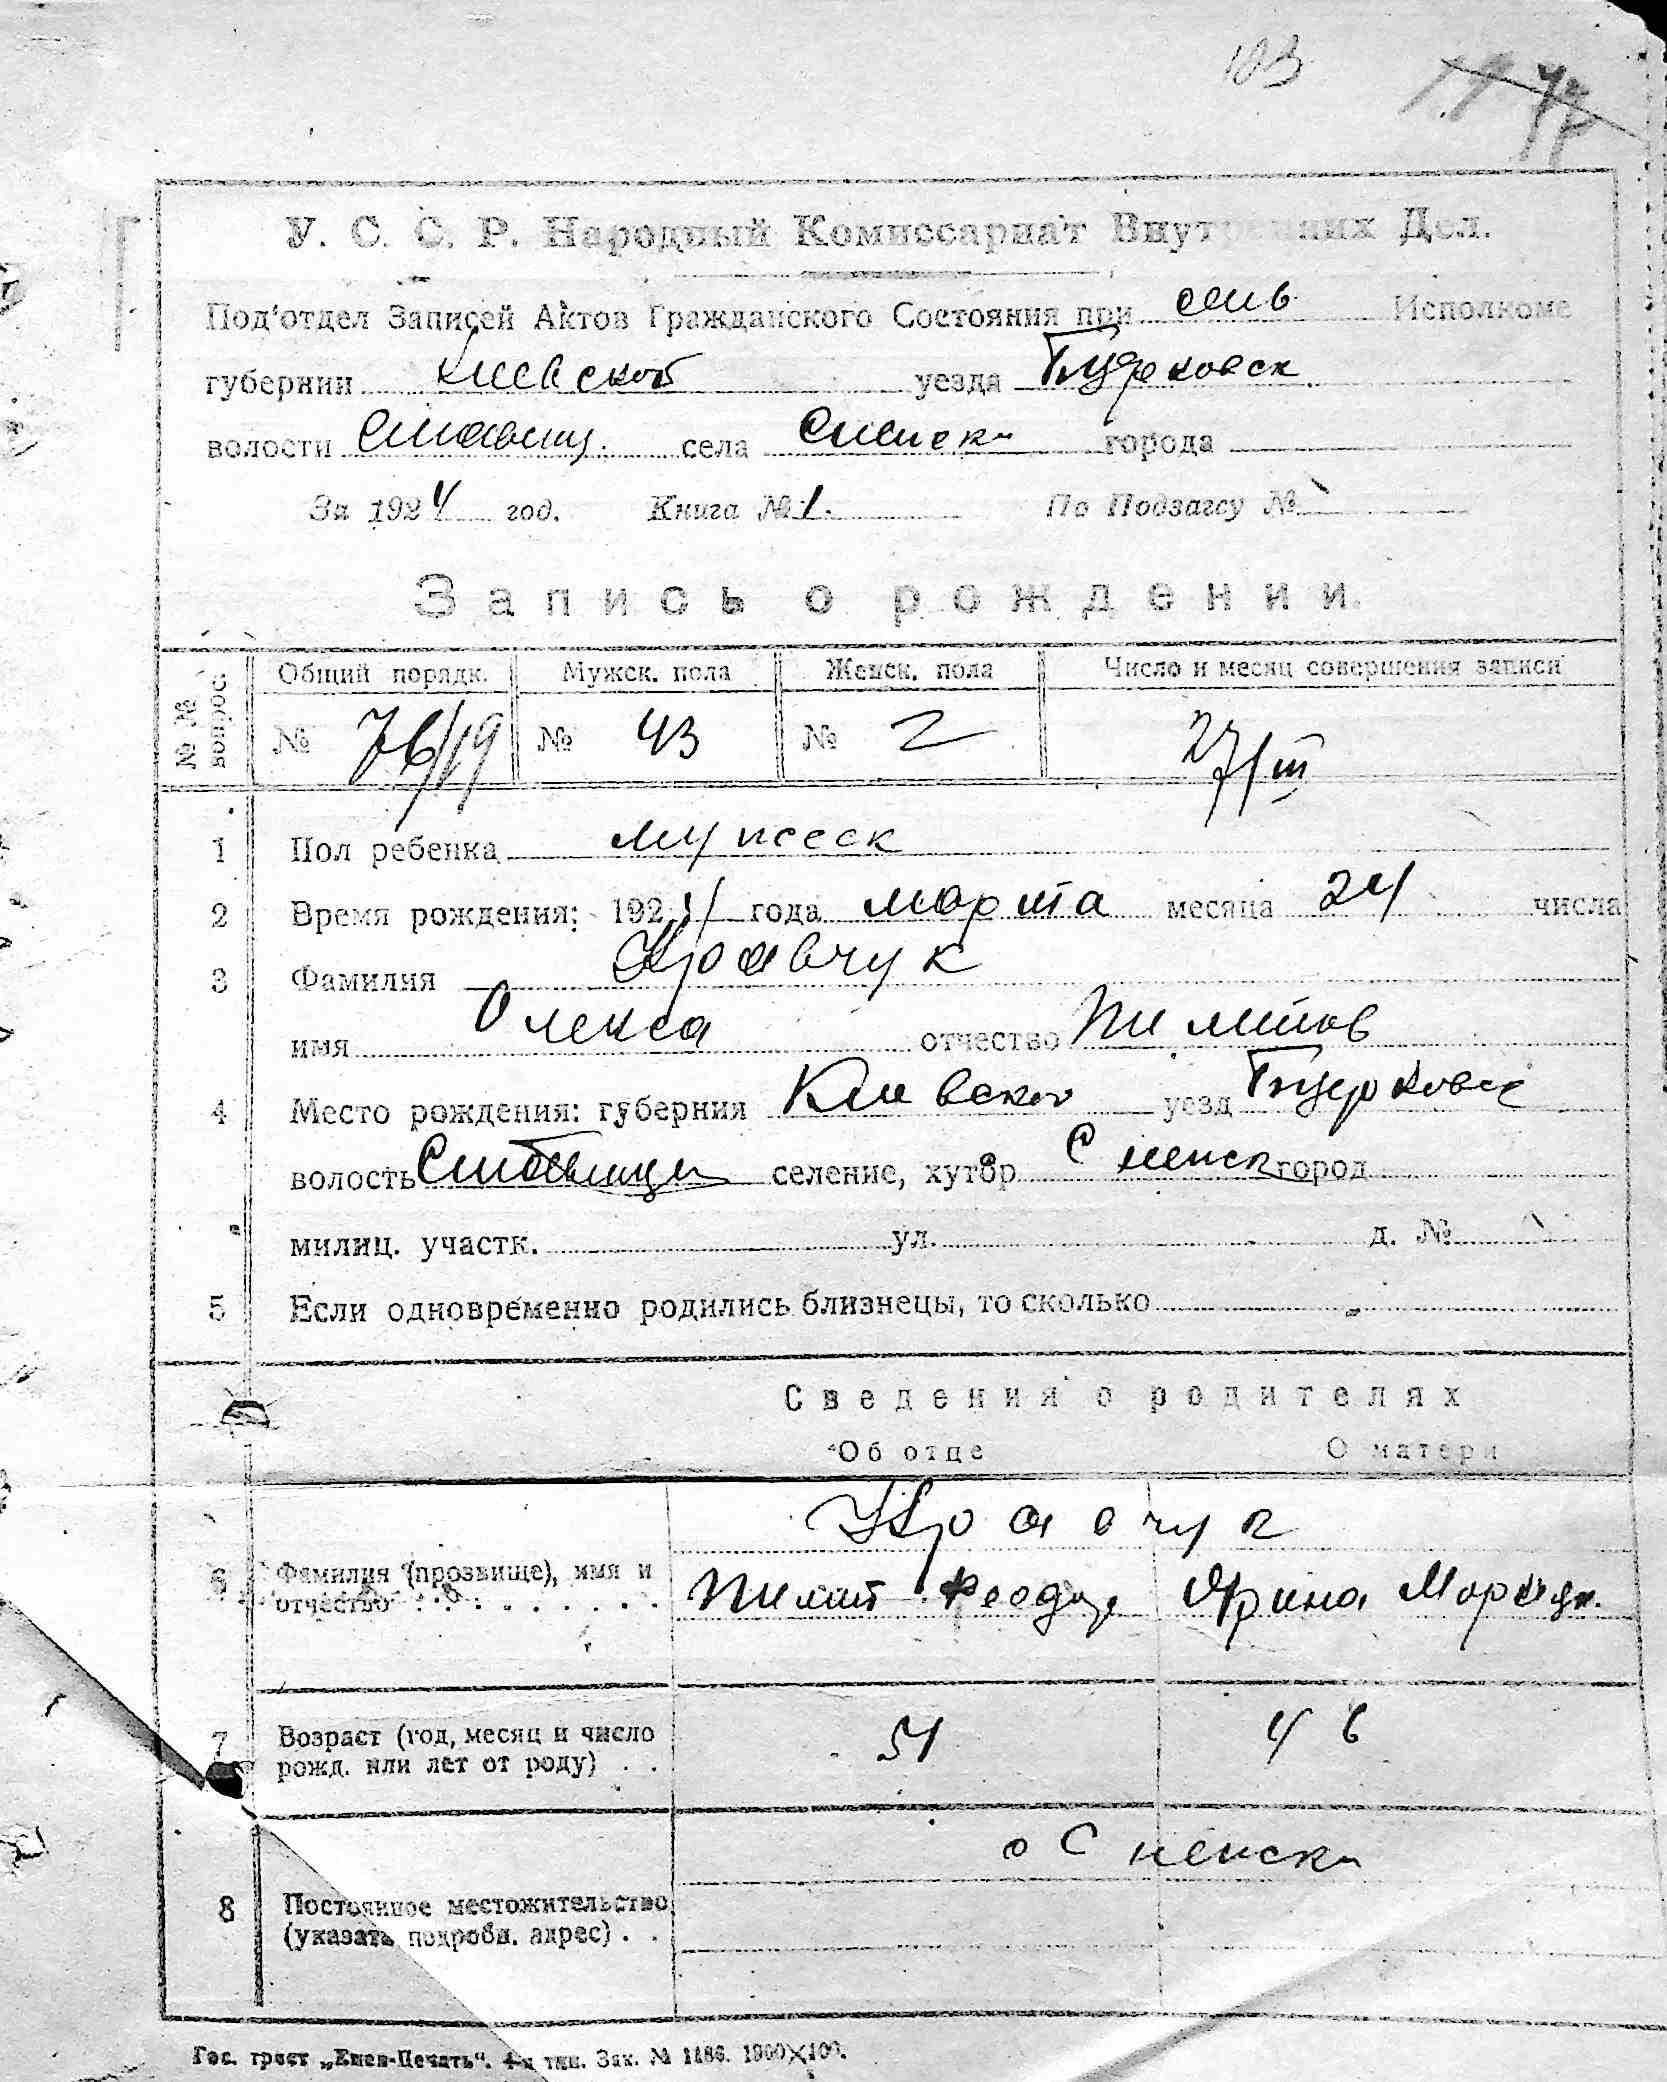 103
У. С. С. Р. Народный Комиссариат Внутренних Дел.
Под'отдел Записей Актов Гражданского Состояния при Исполкоме
губернии Киевской уезда Бцерковск
волости Ставищ. села города
За 1924 год. Книга № 1. По Подзагсу №
Запись о рождении.
№ № вопрос.
Общий порядк. Мужск. пола Женск. пола Число и месяц совершения записи
№ 76/19 № 43 № 27/III
1 Пол ребенка мужеск
2 Время рождения: 1924 года марта месяца 24 числа
3 Фамилия Кравчук
имя Олекса отчество Пилипов
4 Место рождения: губерния Киевской уезд Бцерковск
волость Ставищи селение, хутор город
милиц. участк. ул. д. №
5 Если одновременно родились близнецы, то сколько -
Сведения о родителях
Об отце О матери
Кравчук
6 Фамилия (прозвище), имя и отчество
Пилип Феодор Ярина
7 Возраст (год, месяц и число рожд. или лет от роду) 46
8 Постоянное местожительство (указать подробн. адрес)
Гос. трест „Киев-Печать“. 4-я тип. Зак. № 1186. 1000×100.